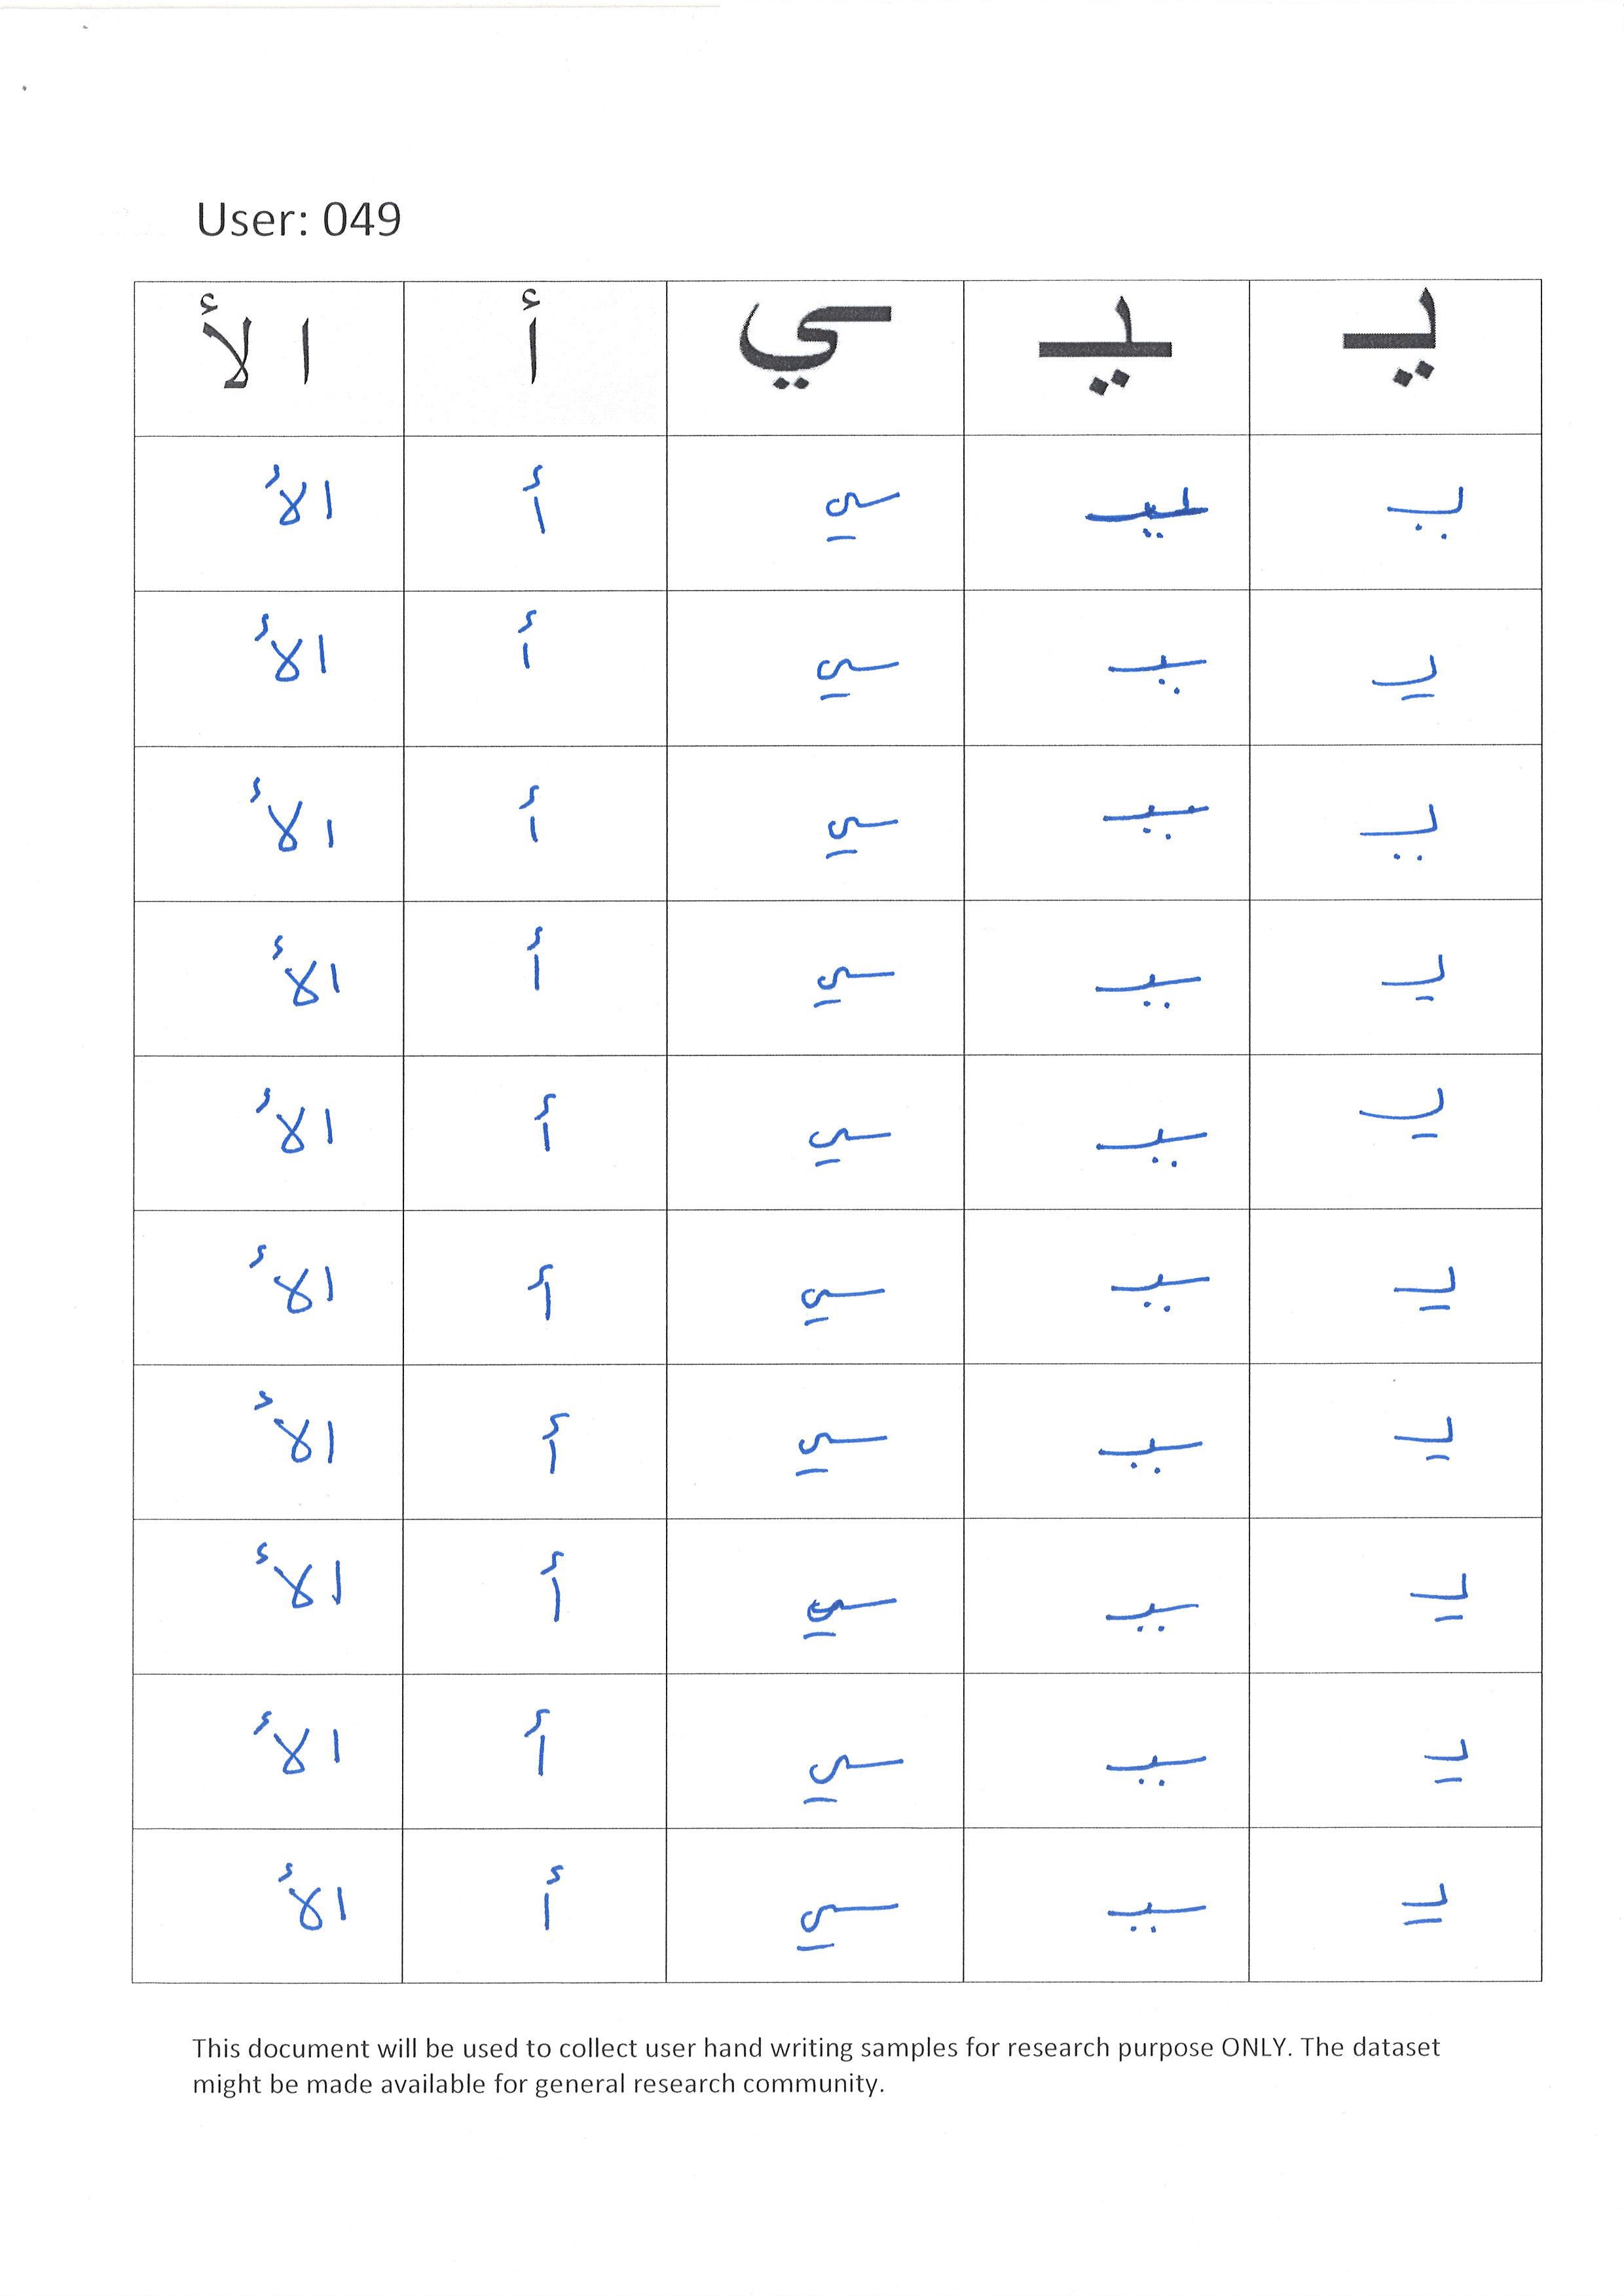 User: 049
يـ ـيـ ـي أ الأ
يـ ـيـ ـي أ الأ
يـ ـيـ ـي أ الأ
يـ ـيـ ـي أ الأ
يـ ـيـ ـي أ الأ
يـ ـيـ ـي أ الأ
يـ ـيـ ـي أ الأ
يـ ـيـ ـي أ الأ
يـ ـيـ ـي أ الأ
يـ ـيـ ـي أ الأ
يـ ـيـ ـي أ الأ
This document will be used to collect user hand writing samples for research purpose ONLY. The dataset
might be made available for general research community.